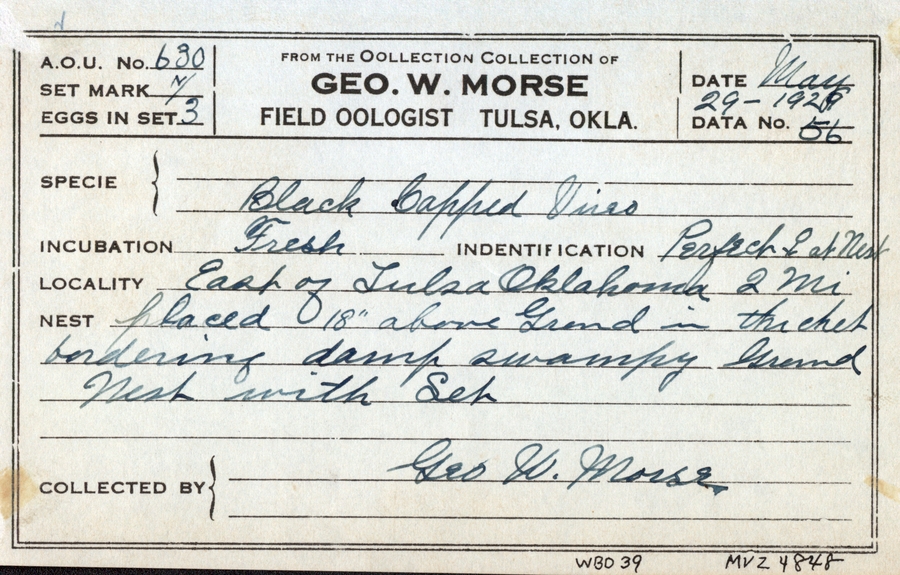 A.O.U. No. 630
SET MARK
EGGS IN SET. 3
FROM THE OOLLECTION COLLECTION OF
GEO. W. MORSE
FIELD OOLOGIST TULSA, OKLA.
DATE May
29 - 1929
DATA No. 56
SPECIE
Black Capped Vireo
INCUBATION Fresh INDENTIFICATION Perfect & at Nest
LOCALITY East of Tulsa Oklahoma 2 Mi
NEST placed 18" above Grond in thicket
bordering damp swampy Grond
Nest with Set
COLLECTED BY Geo W. Morse
WBO 39 MVZ 4848